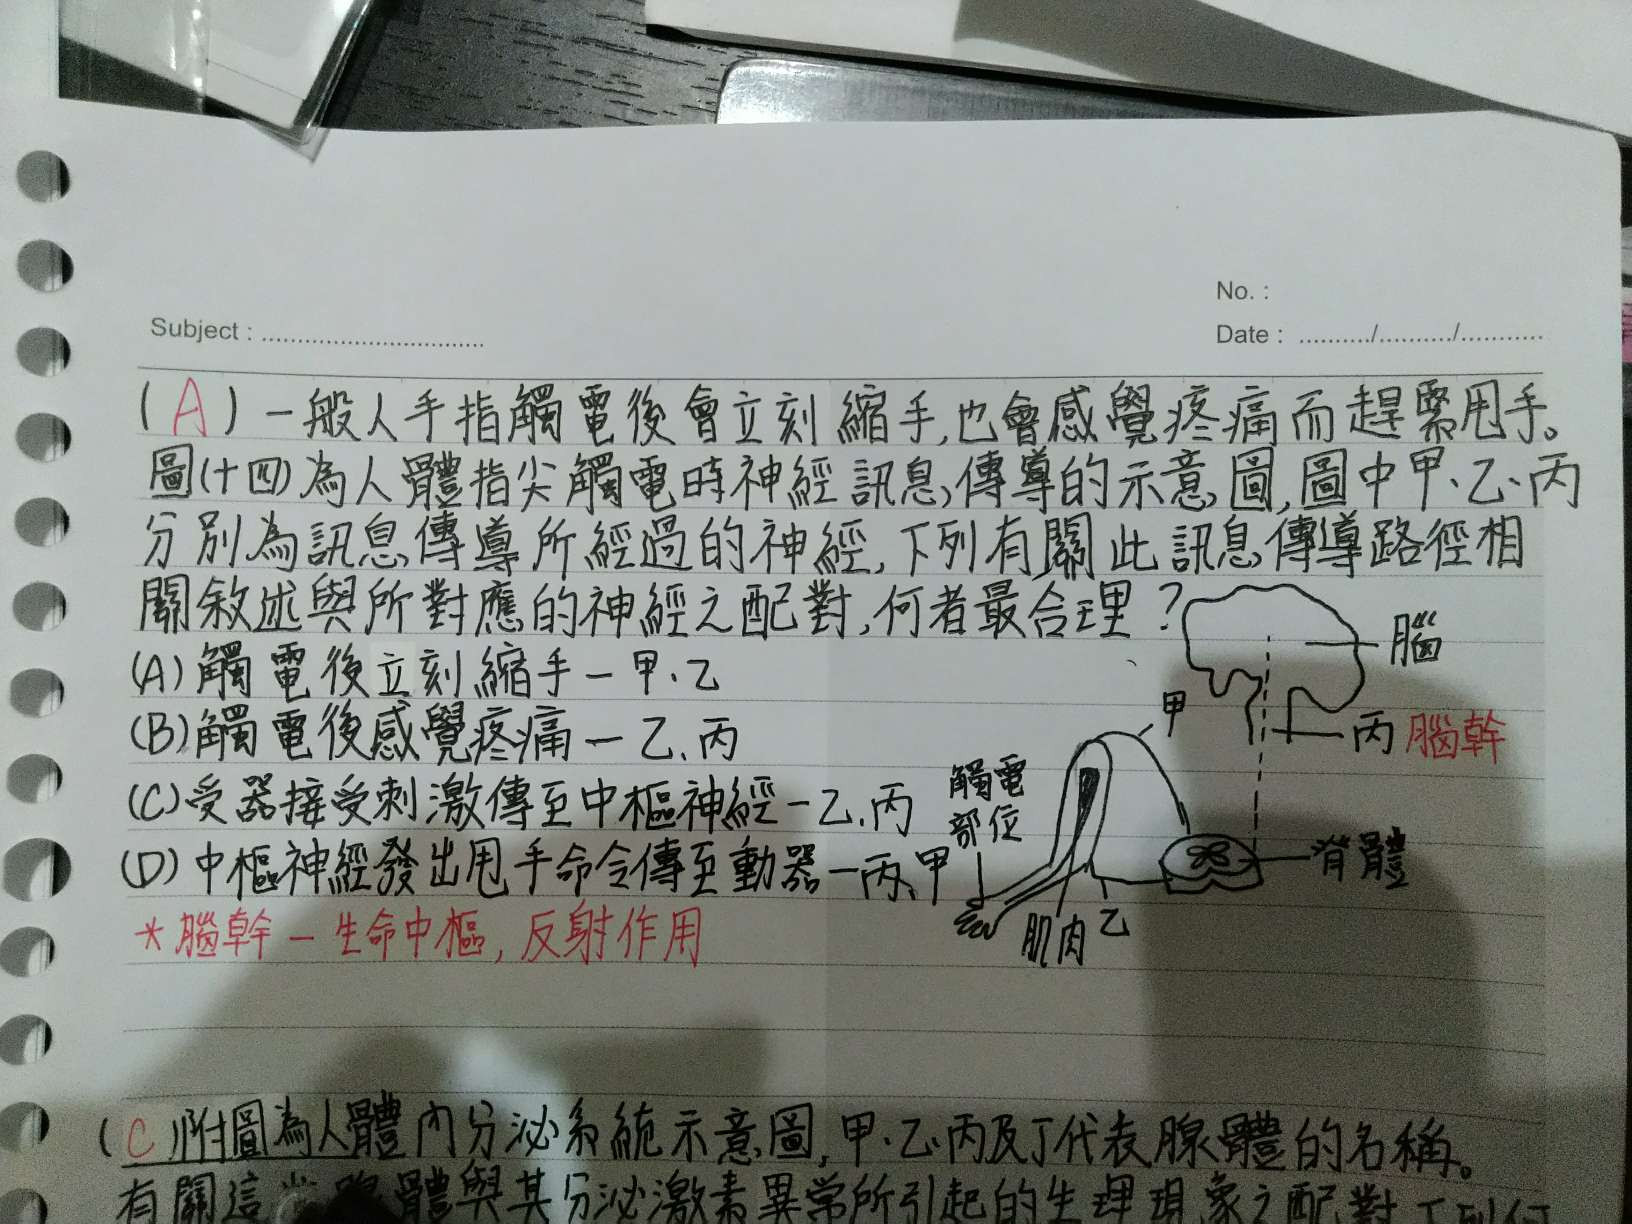 No. :
Subject : ................................
Date : ........../........../...........
(A) 一般人手指觸電後會立刻縮手,也會感覺疼痛而趕緊甩手。
圖(十四)為人體指尖觸電時神經訊息傳導的示意圖,圖中甲、乙、丙
分別為訊息傳導所經過的神經,下列有關此訊息傳導路徑相
關敘述與所對應的神經之配對,何者最合理?
(A)觸電後立刻縮手—甲.乙
(B)觸電後感覺疼痛—乙.丙
(C)受器接受刺激傳至中樞神經—乙.丙
(D)中樞神經發出甩手命令傳至動器—丙.甲
*腦幹—生命中樞,反射作用
腦
甲
丙 腦幹
觸電
部位
脊體
肌肉
乙
(C)附圖為人體內分泌系統示意圖,甲.乙.丙及丁代表腺體的名稱。
有關這 腺體與其分泌激素異常所引起的生理現象之配對